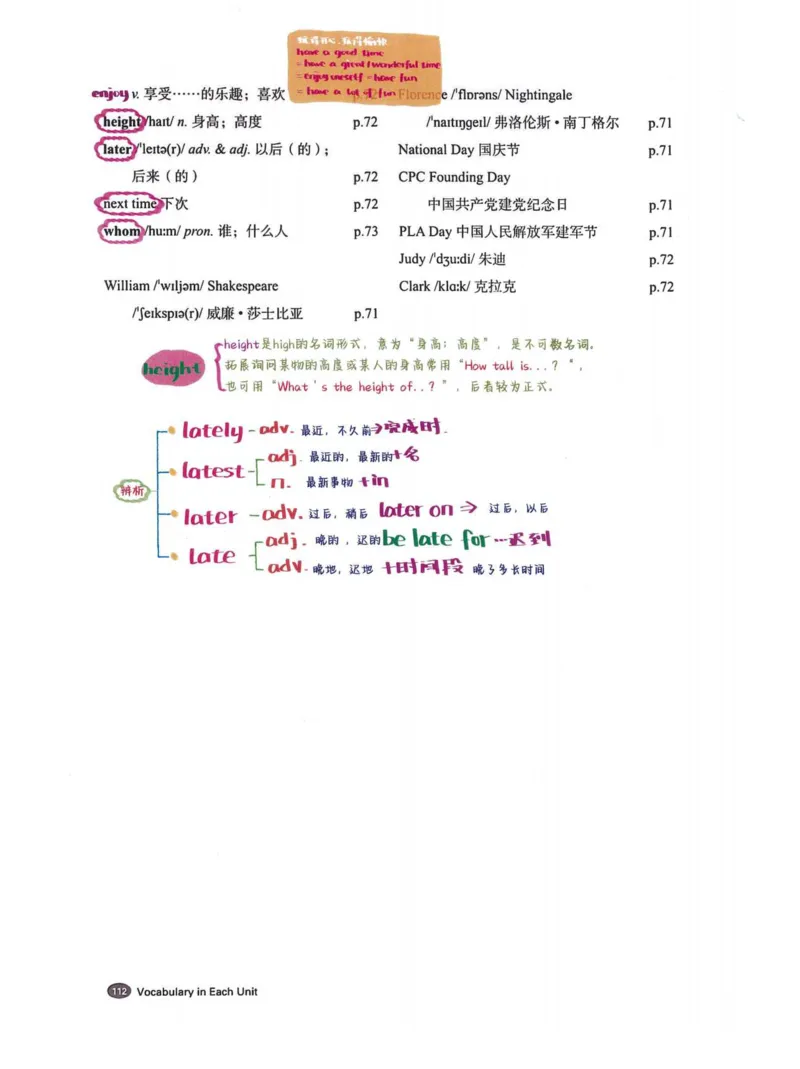 玩得开心,玩得愉快
have a good time
= have a great / wonderful time
= enjoy oneself = have fun
= have a lot of fun
enjoy v. 享受……的乐趣;喜欢
height /haɪt/ n. 身高;高度 p.72
later /ˈleɪtə(r)/ adv. & adj. 以后(的);
后来(的) p.72
next time 下次 p.72
whom /huːm/ pron. 谁;什么人 p.73
William /ˈwɪljəm/ Shakespeare
/ˈʃeɪkspɪə(r)/ 威廉·莎士比亚 p.71
Florence /ˈflɒrəns/ Nightingale
/ˈnaɪtɪŋgeɪl/ 弗洛伦斯·南丁格尔 p.71
National Day 国庆节 p.71
CPC Founding Day
中国共产党建党纪念日 p.71
PLA Day 中国人民解放军建军节 p.71
Judy /ˈdʒuːdi/ 朱迪 p.72
Clark /klɑːk/ 克拉克 p.72
height
height是high的名词形式,意为“身高;高度”,是不可数名词。
拓展询问某物的高度或某人的身高常用“How tall is...?“,
也可用“What's the height of..?”,后者较为正式。
辨析
lately - adv. 最近,不久前→完成时.
latest
adj. 最近的,最新的+名
n. 最新事物 +in
later - adv. 过后,稍后 later on ⇒ 过后,以后
late
adj. 晚的,迟的 be late for …迟到
adv. 晚地,迟地 +时间段 晚了多长时间
112 Vocabulary in Each Unit